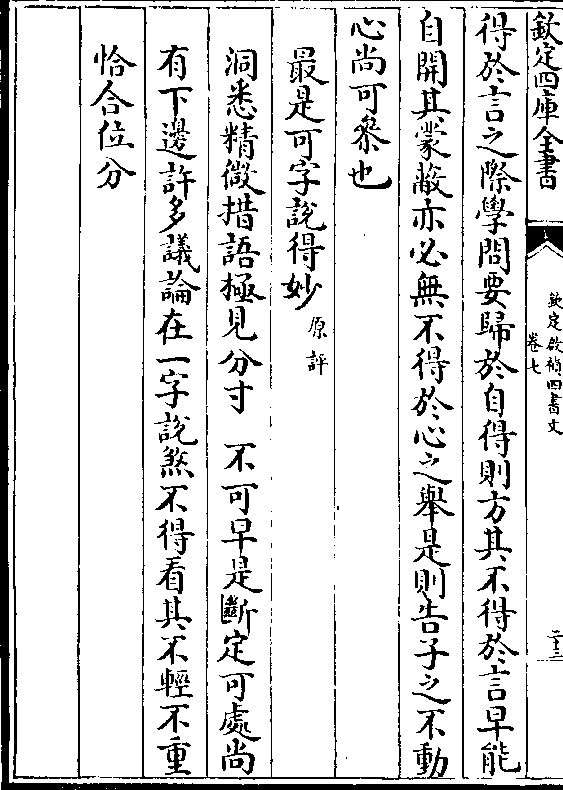 欽定四庫全書
欽定啟禎四書文
卷七
二十三
得於言之際學問要歸於自得則方其不得於言早能
自開其蒙蔽亦必無不得於心之舉是則告子之不動
心尚可叅也
最是可字説得妙原評
洞悉精微措語極見分寸 不可早是斷定可處尚
有下邊許多議論在一字説煞不得看其不輕不重
恰合位分